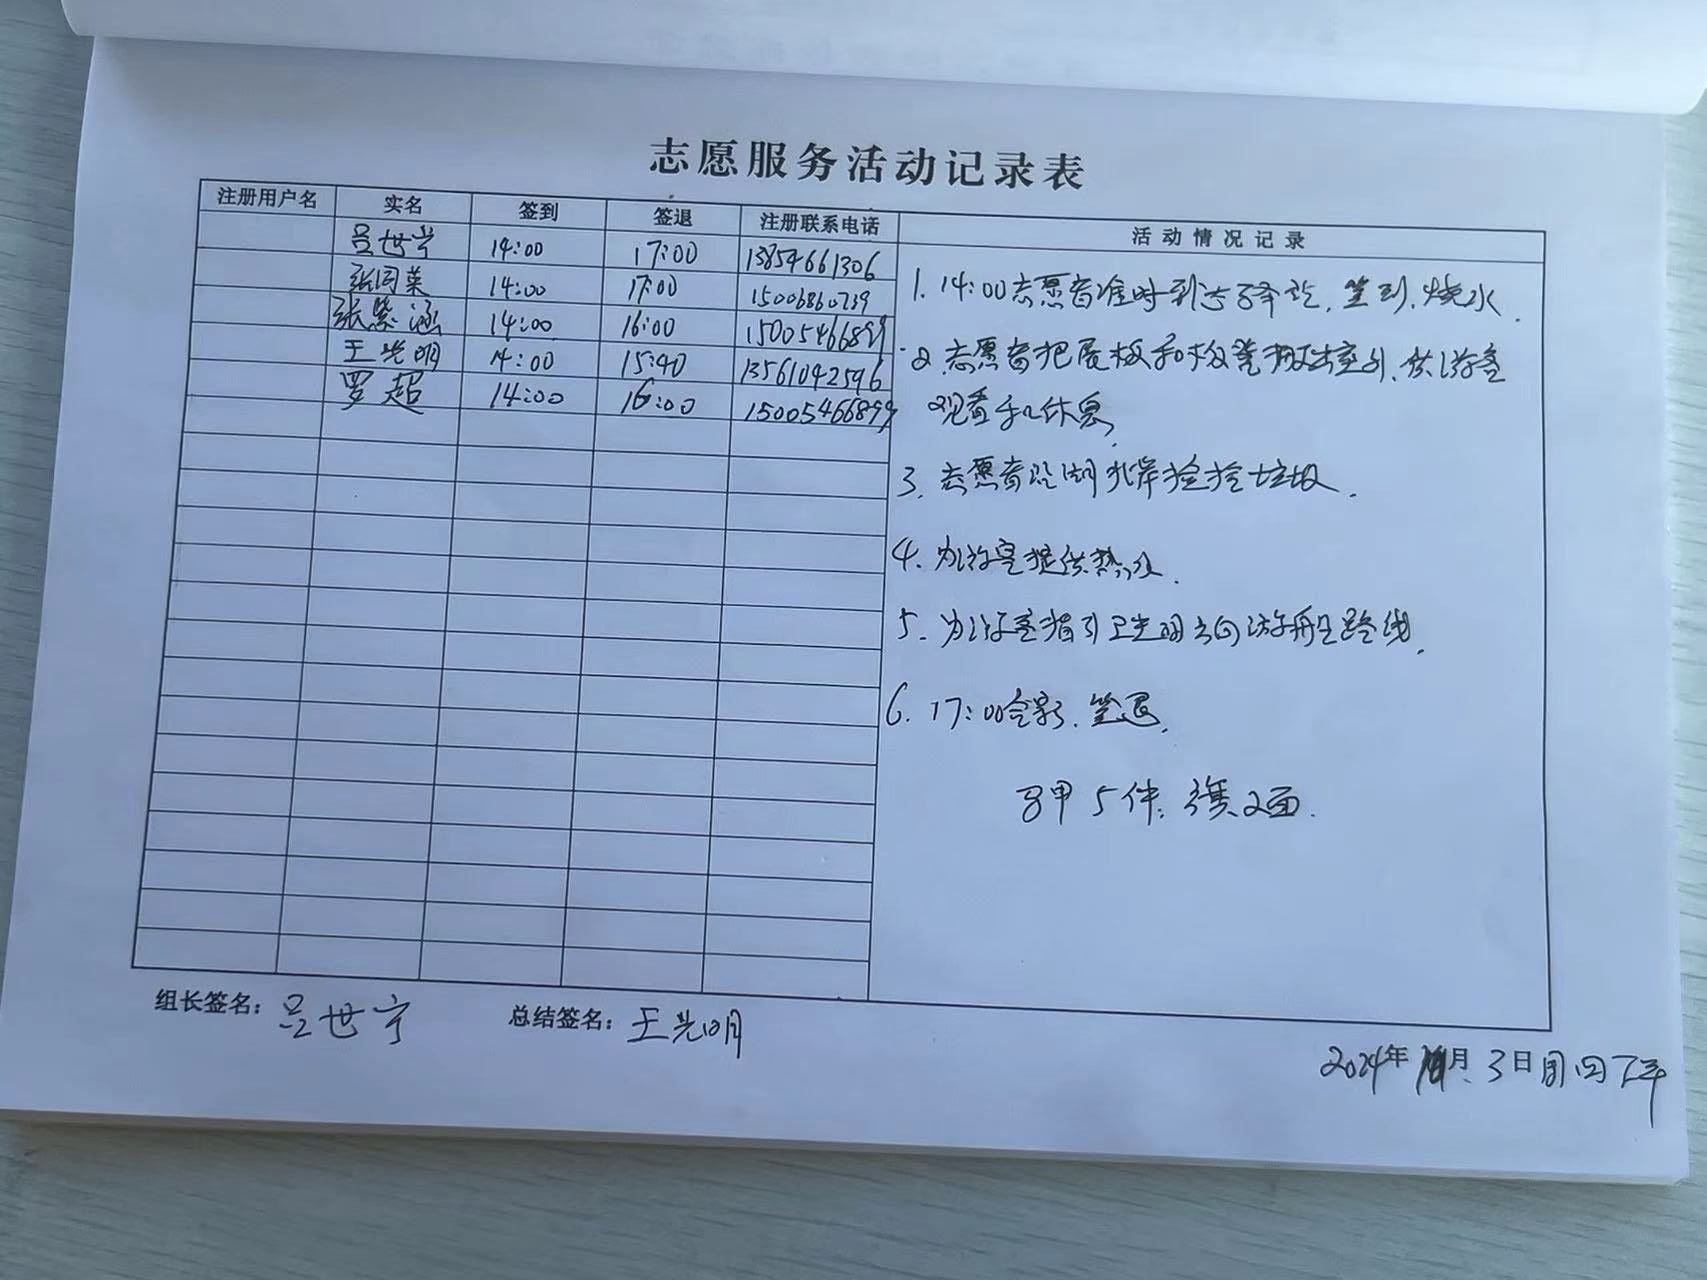 志愿服务活动记录表
注册用户名 实名 签到 签退 注册联系电话 活动情况记录
吕世宁 14:00 17:00 13854661306
张同英 14:00 17:00 15006860739
张紫涵 14:00 16:00 15005466899
王光明 14:00 15:40 13561042596
罗超 14:00 16:00 15005466899
1. 14:00志愿者准时到达驿站,签到,烧水.
2. 志愿者把展板和板凳搬出室外,供游客
观看和休息,
3. 志愿者沿湖北岸捡拾垃圾.
4. 为游客提供热水.
5. 为游客指引卫生间方向游船路线.
6. 17:00合影,签退,
马甲5件,旗2面.
组长签名:吕世宁 总结签名:王光明
2024年 月3日周四下午